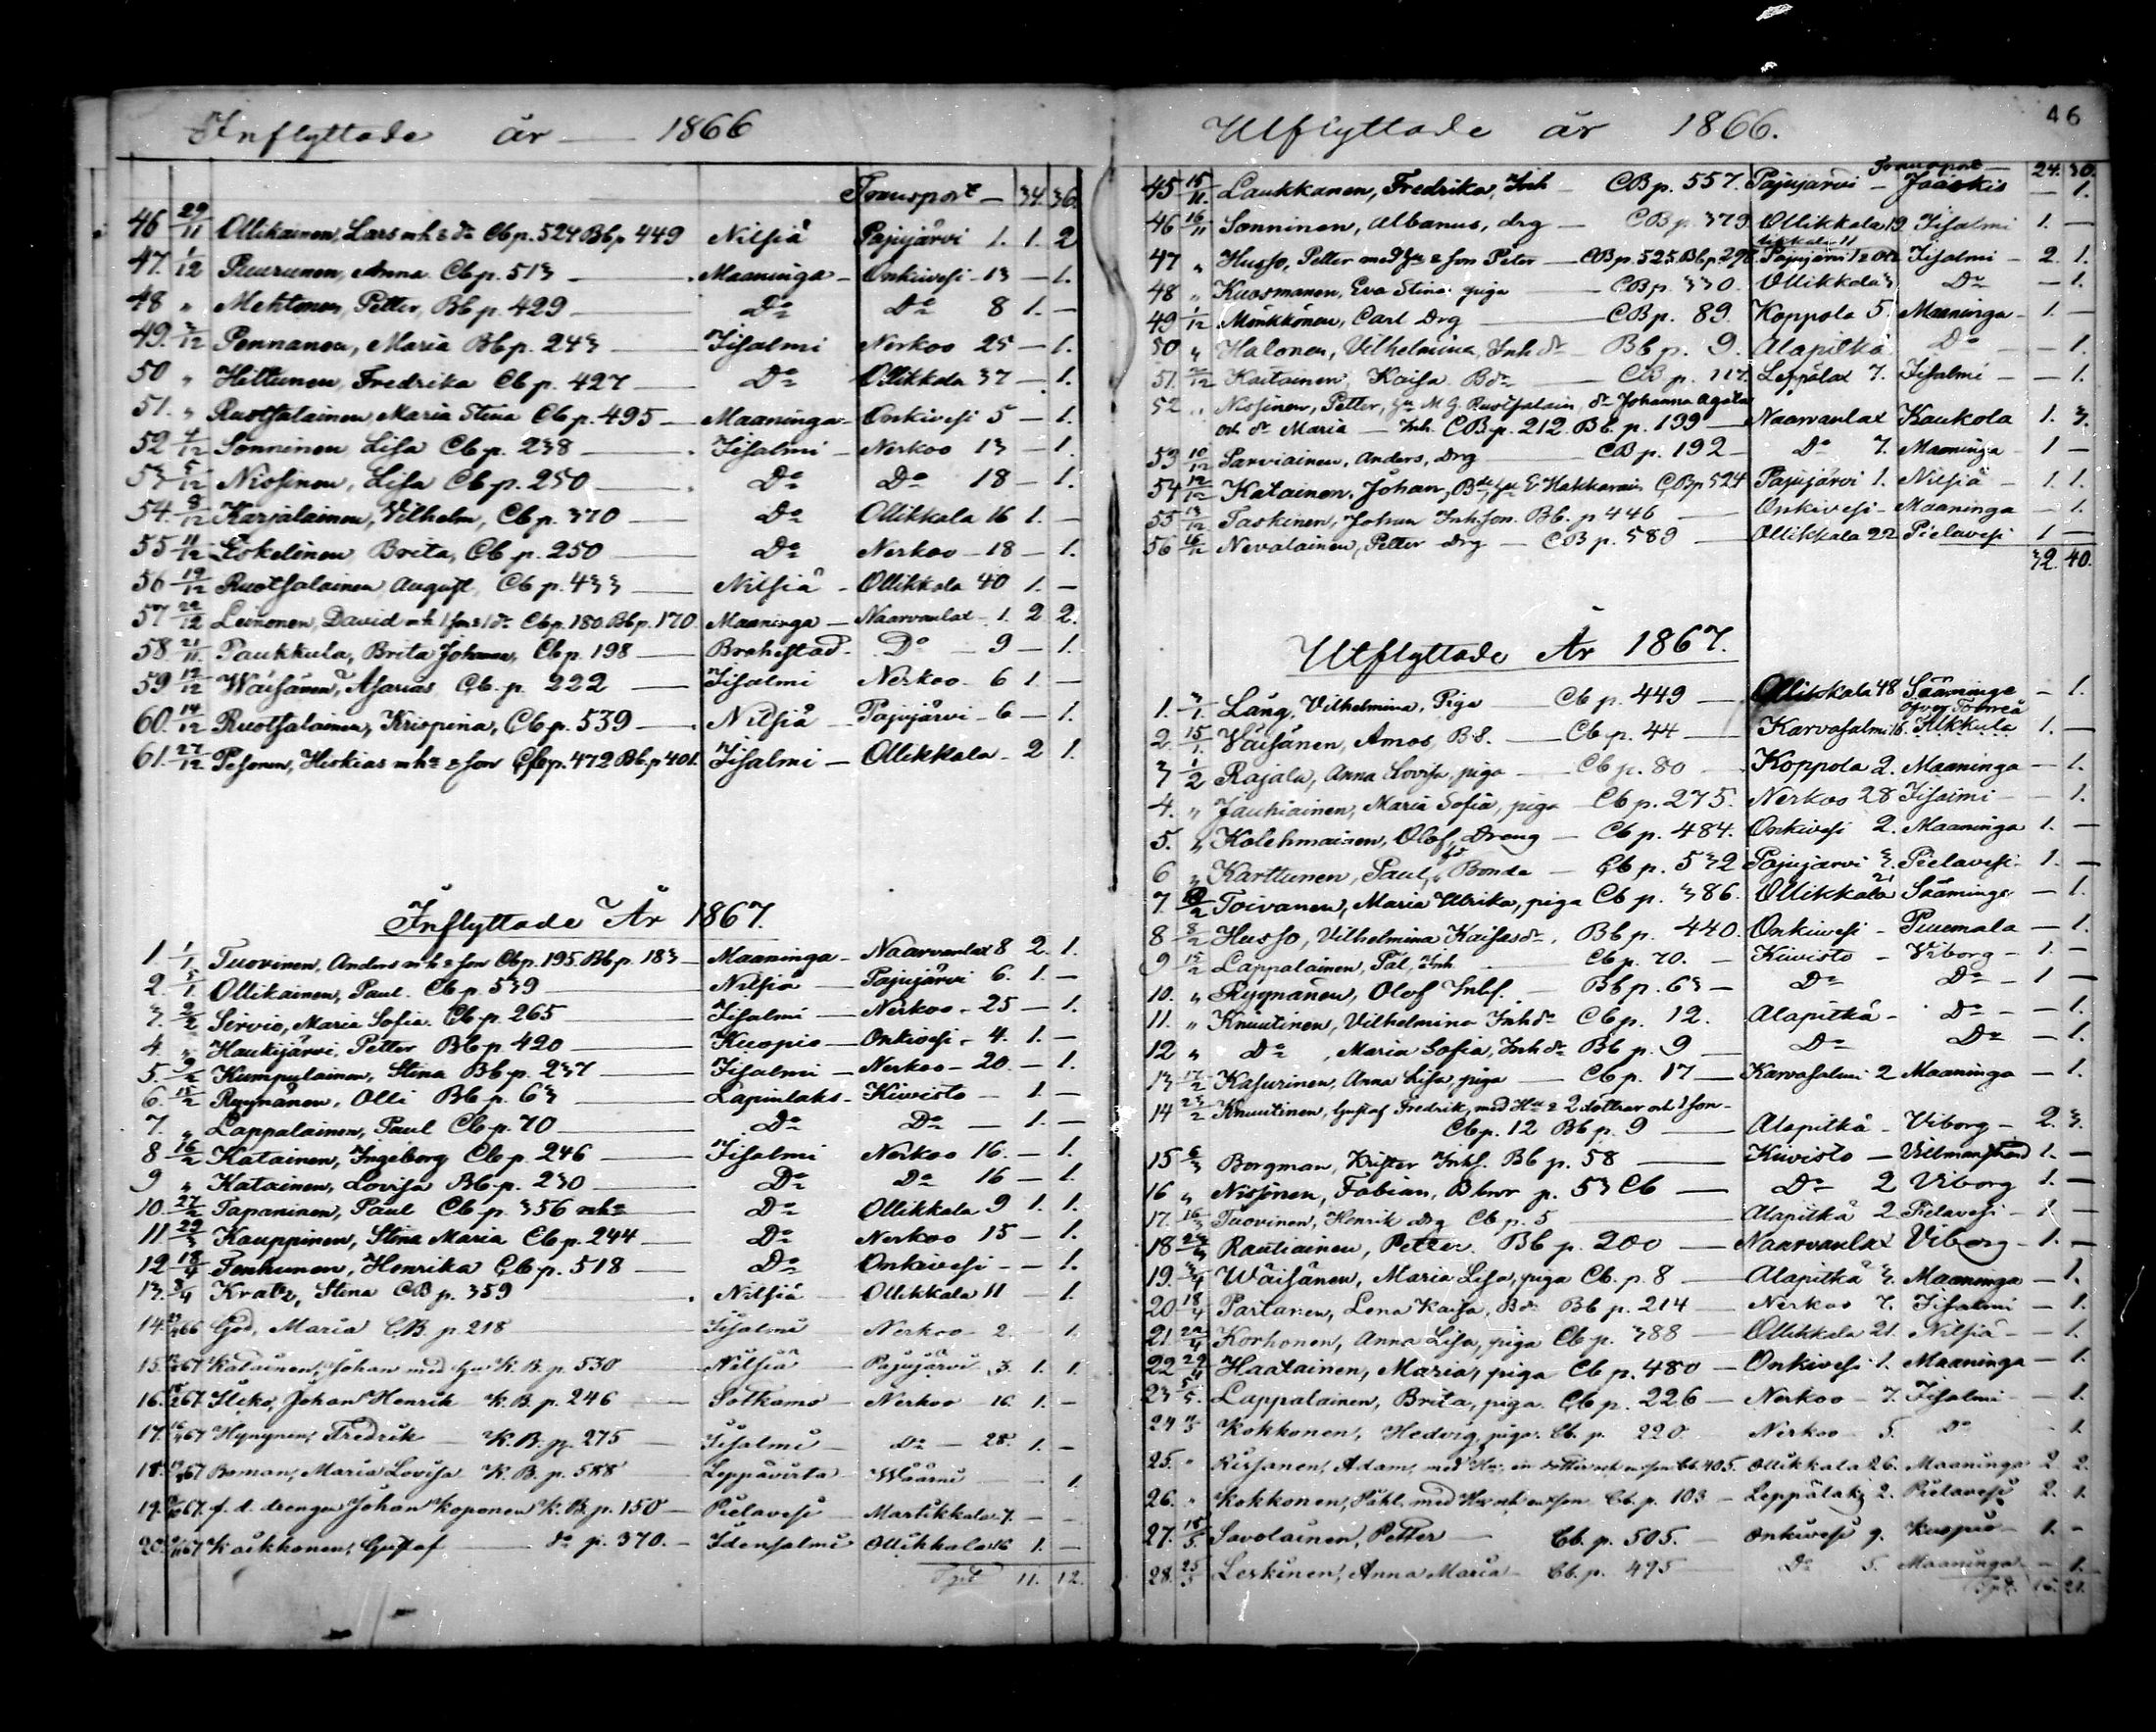 Inflyttade år — 1866
Transport — 34. 36.
46 29/11 Ollikainen, Lars mh & dr Cb p. 524 Bb p 449 Nilsiä Pajujärvi 1. 1. 2
47. 1/12 Ruurunen, Anna Cb p. 513 — Maaninga — Onkivesi 13 — 1.
48 " Mehtonen, Petter, Bb p. 429 — Do Do 8 1. —
49. 3/12 Pennanen, Maria Bb p. 243 — Iisalmi Nerkoo 25 — 1.
50 " Hiltunen, Fredrika Cb p. 427 — Do Ollikkala 37 — 1.
51. " Ruotsalainen, Maria Stina Cb p. 495 — Maaninga — Onkivesi 5 — 1.
52 4/12 Sonninen, Lisa Cb p. 238 — Iisalmi — Nerkoo 13 — 1.
53 5/12 Nissinen, Lisa Cb p. 250 — Do Do 18 — 1.
54. 8/12 Karjalainen, Vilhelm, Cb p. 370 — Do Ollikkala 16 1. —
55 11/12 Eskelinen Brita, Cb p. 250 — Do Nerkoo — 18 — 1.
56 19/12 Ruotsalainen August, Cb p. 433 — Nilsiä — Ollikkala 40 1. —
57 22/12 Leinonen, David mh 1 son & 1 dr Cb p. 180 Bb p. 170. Maaninga — Naarvanlax — 1. 2 2.
58. 21/11. Paukkula, Brita Johanna, Cb p. 198 — Brahestad. Do — 9 — 1.
59 12/12 Wäisänen, Asarias Cb. p. 222 — Iisalmi Nerkoo — 6 1. —
60. 14/12 Ruotsalainen, Krispina, Cb p. 539 — Nilsiä — Pajujärvi — 6 — 1.
61. 27/12. Pesonen, Hiskias mhu & son Cb p. 472 Bb. p 401. Iisalmi — Ollikkala — 2 1.
Inflyttade År 1867.
1. 1/1 Tuovinen, Anders mh & son Cb p. 195 Bb p. 183 — Maaninga — Naarvanlax 8 2. 1.
2. 5/1. Ollikainen, Paul. Cb p. 539 — Nilsiä — Pajujärvi 6. 1. —
3. 2/2 Sirviö, Maria Sofia. Cb p. 265 — Iisalmi — Nerkoo — 25 — 1.
4. " Haukijärvi, Petter Bb p. 420 — Kuopio — Onkivesi — 4. 1. —
5. 9/2 Kumpulainen, Stina Bb p. 237 — Iisalmi — Nerkoo — 20. — 1.
6. 15/2 Ryynänen, Olli Bb p. 63 — Lapinlaks — Kiwistö — 1. —
7. " Lappalainen, Paul Cb p. 70 — Do Do — 1. —
8 16/2 Katainen, Ingeborg Cb p. 246 — Iisalmi Nerkoo 16. — 1.
9 " Katainen, Lovisa Bb p. 230 — Do Do 16 — 1.
10. 27/2 Tapaninen, Paul Cb p. 356 mhu — Do Ollikkala 9 1. 1.
11 29/3 Kauppinen, Stina Maria Cb p. 244 — Do Nerkoo 15 — 1.
12 18/4 Tenhunen, Henrika Cb p. 518 — Do Onkivesi — — 1.
13. 3/4 Kratz, Stina CB p. 359 — Nilsiä — Ollikkala 11 — 1.
14. 66 God, Maria CB. p. 218 — Iisalmi Nerkoo 2. — 1.
15. 67 Katainen, Johan med hu K. B. p. 530 — Nilsiä — Pajujärvi 3. 1. 1
16. 67. Johan Henrik K. B. p. 246 — Sotkamo — Nerkoo 16 1. —
17. 67 Hynynen, Fredrik — K. B. p. 275 — Iisalmi — Do — 28. 1. —
18. 67 Boman, Maria Lovisa K. B. p. 588 — Leppävirta — Wäärni — 1.
19. 67. f. d. drengen Johan Koponen K. B. p. 150 — Pielavesi — Martikkala 7. — —
20. 67 Kaikkonen, Gustaf — do p. 370. — Idensalmi Ollikkala 16 1. —
Tpt 11. 12.
46
Utflyttade år 1866.
Transport — 24. 30.
45 15/11. Laukkanen, Fredrika, Inh — CB p. 557. Pajujärvi — Jääskis — 1.
46 16/11 Sonninen, Albanus, drg — CB p. 379. Ollikkala 19. Iisalmi 1. —
47 " Husso, Petter med hu & son Peter — CB p. 525. Bb p. 298. Pajujärvi Iisalmi — 2. 1.
48 " Kuosmanen, Eva Stina piga — CB p. 330. Ollikkala 3 Do — 1.
49 1/12 Mönkkönen, Carl Drg — CB p. 89. Koppola 5. Maaninga — 1. —
50 " Halonen, Vilhelmina, Inh dr — Bb p. 9. Alapitkä Do — 1.
51. 2/12 Kaitainen, Kaisa Bdr — CB p. 117. Leppälax 7. Iisalmi — — 1.
52 " Nissinen, Petter, hu M. G. Ruotsalain, dr Johanna Agata
och dr Maria — Inh. CB p. 212. Bb. p. 199 — Naarvanlax Kaukola 1. 3.
53 10/12 Parviainen, Anders, drg CB p. 192 — Do 7. Maaninga — 1 —
54 12/12 Katainen, Johan, Bde, hu E. Hakkarain CB p 524 Pajujärvi 1. Nilsiä — 1. 1.
55 13/12 Taskinen, Johan Inh. son. Bb. p 446 — Onkivesi — Maaninga — 1. —
56 16/12 Nevalainen, Petter drg — CB p. 589 — Ollikkala 22 Pielavesi 1 —
32. 40.
Utflyttade År 1867.
1. 3/1. Lång, Vilhelmina, Piga — Cb p. 449 — Ollikkala 48 Sääminge — 1.
2. 15/1. Väisänen, Amos, B. S. — Cb p. 44 — Karvasalmi 16. Alkkula 1. —
3 1/2 Rajala, Anna Lovisa, piga — Cb p. 80 — Koppola 2. Maaninga — 1.
4. " Jauhiainen, Maria Sofia, piga — Cb p. 275. Nerkoo 28 Iisalmi — 1.
5. " Kolehmainen, Olof, Dreng — Cb p. 484. Onkivesi 2. Maaninga 1. —
6 " Karttunen, Paul, fd Bonde — Cb p. 532 Pajujärvi 3. Pielavesi — 1. —
7. Toivanen, Maria Ulrika, piga Cb p. 386. Ollikkala 21 Sääminge — 1.
8 8/2 Husso, Vilhelmina Kaisasdr, Bb p. 440. Onkivesi — Puumala — 1.
9 15/2 Lappalainen, Pål, Inh. — Cb p. 70. — Kiwistö — Viborg — 1. —
10. " Ryynänen, Olof Inhs. — Bb p. 63 — Do Do — 1 —
11. " Knuutinen, Vilhelmina Inh dr Cb p. 12. Alapitkä — Do — — 1.
12 " Do, Maria Sofia, Inh dr Bb p. 9 — Do Do — 1.
13 17/2 Kasurinen, Anna Lisa, piga — Cb p. 17 — Karvasalmi 2 Maaninga — 1.
14 23/2 Knuutinen, Gustaf Fredrik, med Hu & 2 döttrar och 1 son —
Cb p. 12 Bb p. 9 — Alapitkä — Viborg — 2. 3.
15 6/3 Borgman, Krister Inhs. Bb p. 58 — Kiwistö — Villmanstrand 1. —
16 " Nissinen, Fabian, Bbror p. 53 Cb — Do 2 Viborg 1. —
17. 16/3 Tuovinen, Henrik drg Cb p. 5 — Alapitkä 2 Pielavesi — 1 —
18 Rautiainen, Petter. Bb p. 200 — Naarvanlax Viborg — 1. —
19. 3/4 Wäisänen, Maria Lisa, piga Cb. p. 8 — Alapitkä 3. Maaninga — 1.
20. 18/4 Partanen, Lena Kaisa, Bdr Bb p. 214 — Nerkoo 7. Iisalmi — 1.
21. 22/4 Korhonen, Anna Lisa, piga Cb p. 388 — Ollikkala 21. Nilsiä — 1.
22 29/4 Haatainen, Maria, piga Cb p. 480 — Onkivesi 1. Maaninga — 1.
23 5/5. Lappalainen, Brita, piga. Cb p. 226 — Nerkoo — 7. Iisalmi — 1.
24 Kokkonen, Hedvig, piga. Cb. p. 220. Nerkoo 5. Do 1.
25. " Rissanen, Adam, med Hu, en dotter och en son Cb. 405. Ollikkala 26. Maaninga 2. 2.
26. " Kokkonen, Påhl. med Hu och en son Cb. p. 103 — Leppälaks 2. Pielavesi 2. 1.
27. 15/5. Savolainen, Petter — Cb. p. 505. — Onkivesi 9. Kuopio — 1. —
28. 25/5 Leskinen, Anna Maria — Cb. p. 495 — Do 5. Maaninga — 1.
Tpt. 15. 21.